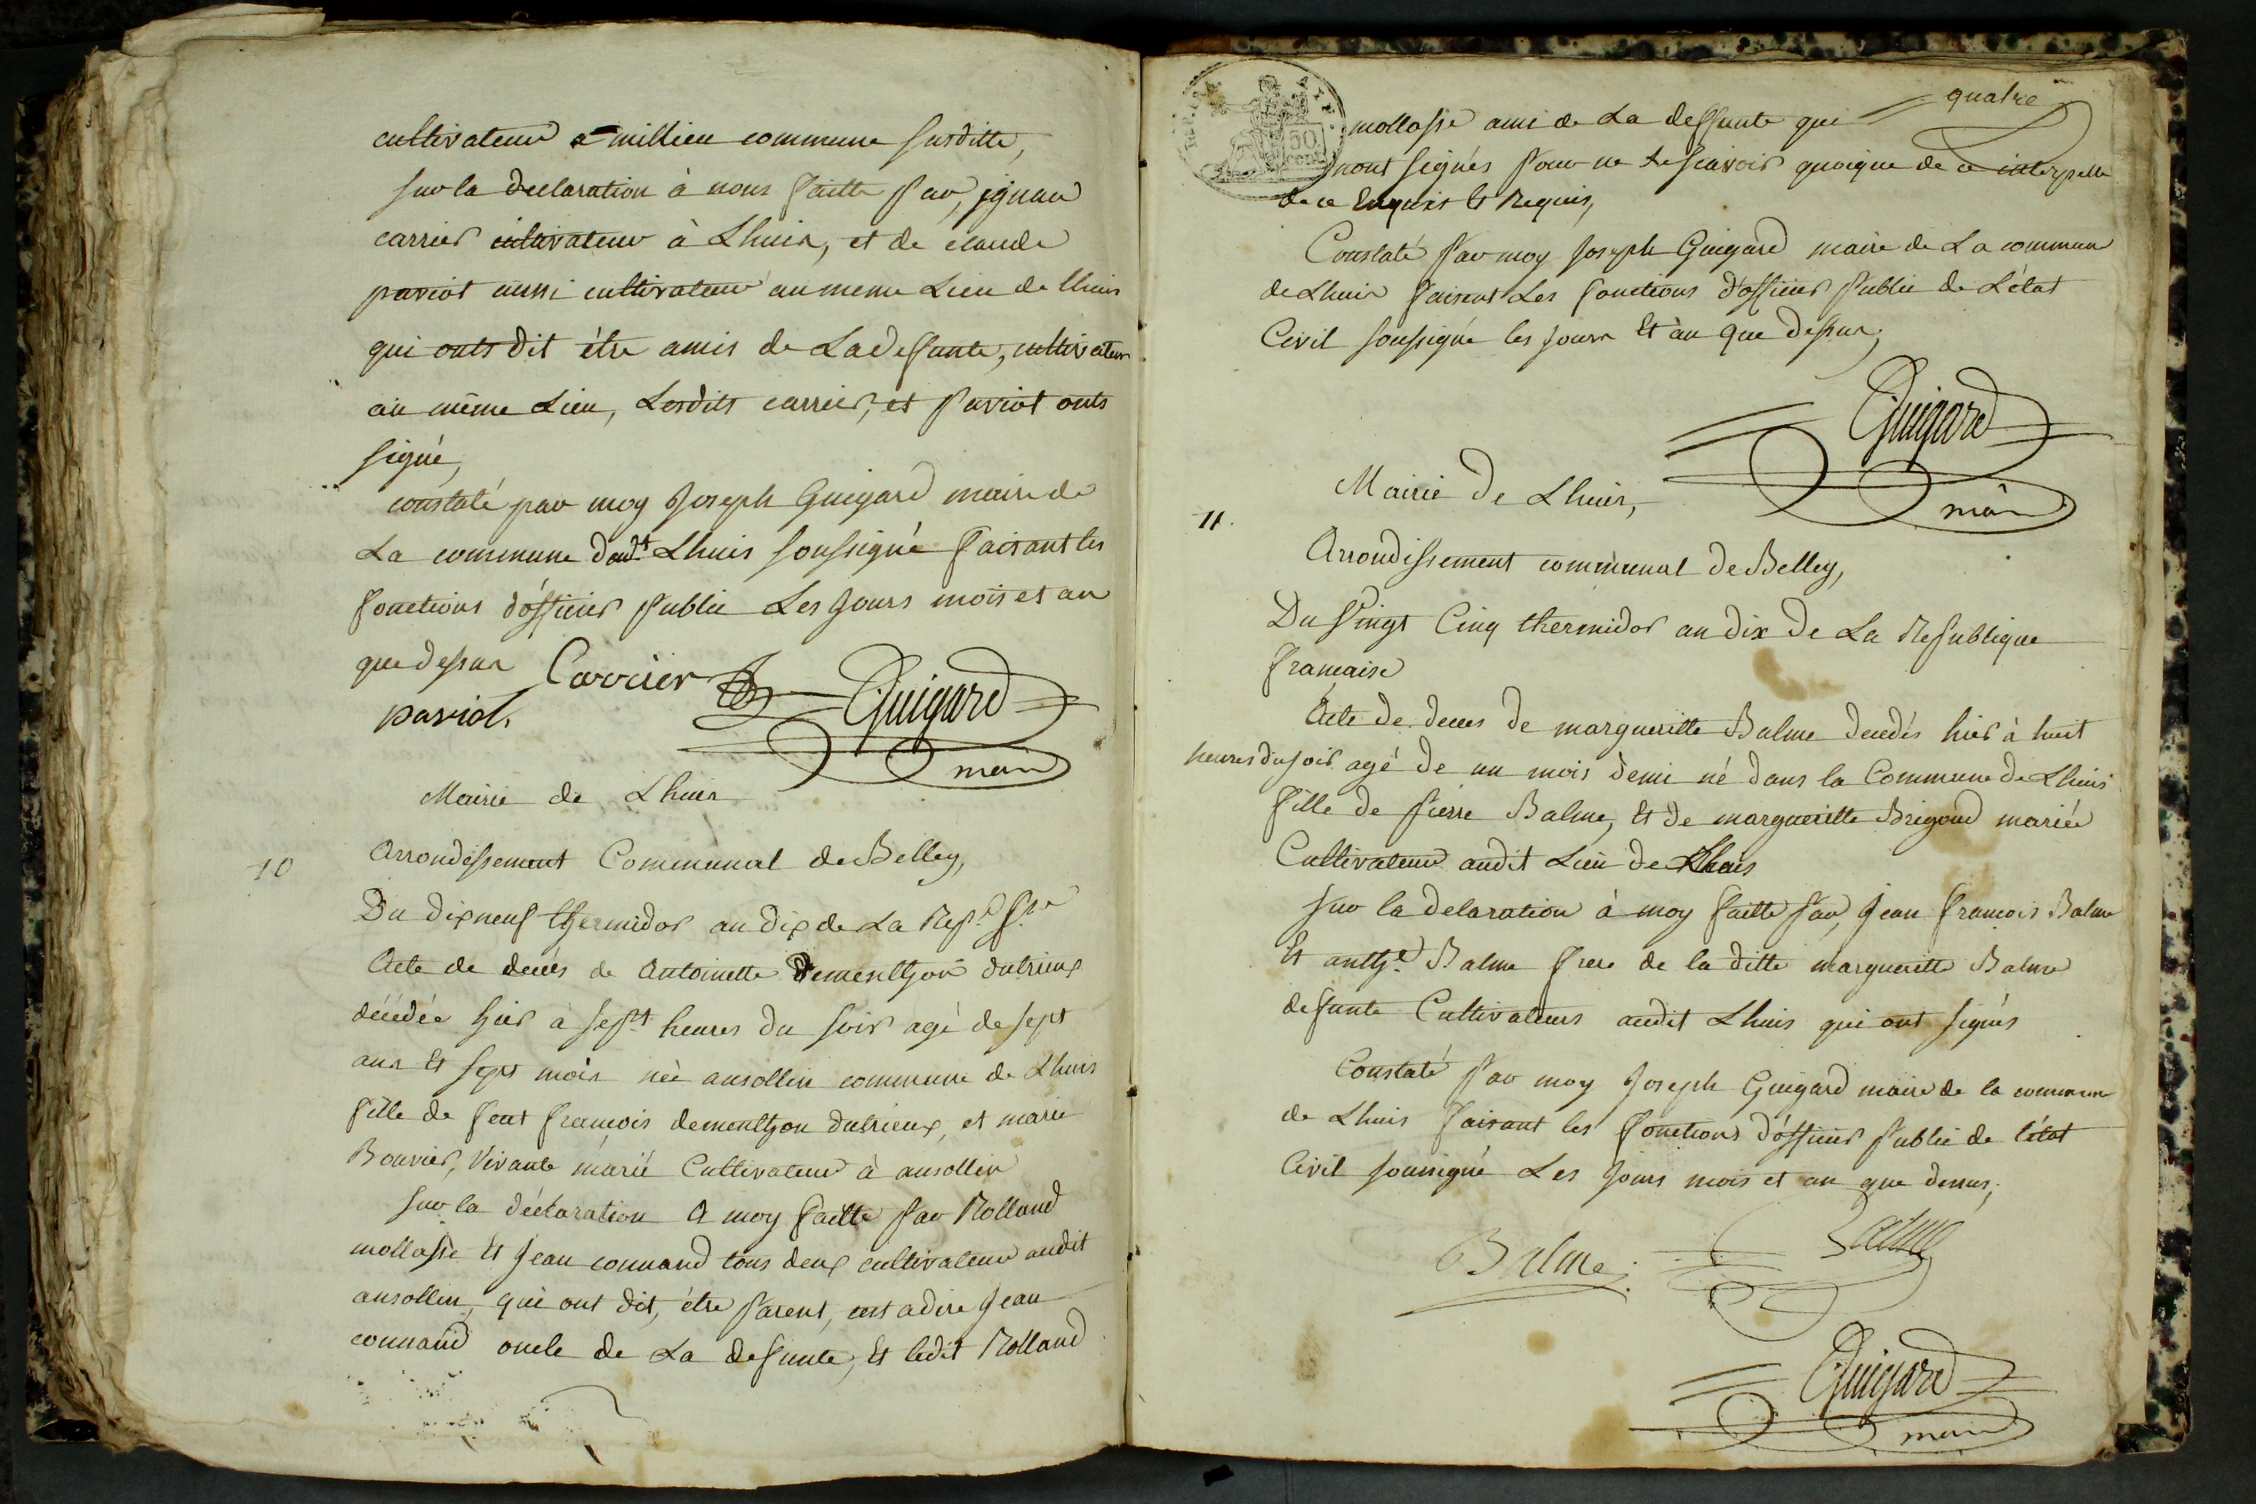 cultivateur a millieu commune susditte,
sur la declaration à nous faitte par, ignace
carrier cultivateur à Lhuis, et de claude
paviot aussi cultivateur au meme Lieu de lhuis
qui onts dit être amis de La deffunte, cultivateur
au même Lieu, Lesdits carrier, et paviot onts
signé,
constaté par moy Joseph Guigard maire de
La commune dudt Lhuis soussigné faisant les
fonctions d'officier public Les jours mois et an
que dessus Carrier Guigard
paviot. maire
Mairie de Lhuis
10 arrondissement Communal de Belley,
Du dix neuf thermidor an dix de La Rep.e f.se
Acte de décès de Antoinette Dementhon dutrieux
décédée hier à sept heures du soir agé de sept
ans Et sept mois née ansollin commune de Lhuis
fille de feut françois dementhon dutrieux, et marie
Bouvier, vivante marié Cultivateur à ansollin
sur la déclaration A moy faitte par Rolland
mollasse Et Jean connand tous deux cultivateur audit
ansollin, qui ont dit, être parent, cest adire Jean
connand oncle de La defunte, Et ledit Rolland
quatre
50 cent
mollasse ami de La deffunte qui
nont signés pour ne Le scavoir quoique de ce interpelle
de ce Enquis Et Requis,
Constaté par moy Joseph Guigard maire de La commune
de Lhuis faisent Les fonctions d'officier public de L'état
Civil soussigné les jours Et àn que dessus,
Guigard
maire
Mairie de Lhuis,
11.
Arrondissement communal de Belley,
Du vingt Cinq thermidor an dix de La Republique
francaise
Acte de deces de margueritte Balme decedés hier à huit
heures du soir agé de un mois demi né dans la Commune de Lhuis
fille de pierre Balme, Et de margueritte Brigand mariée
Cultivateur audit Lieu de Lhuis
sur la delaration à moy faitte par, Jean francois Balme
Et anth.e Balme frere de la ditte margueritte Balme
defunte Cultivateurs audit Lhuis qui ont signés
Constaté par moy Joseph Guigard maire de la commune
de Lhuis faisant les fonctions d'officier public de l'état
Civil soussigné Les jours mois et an que dessus,
Balme Balme
Guigard
maire